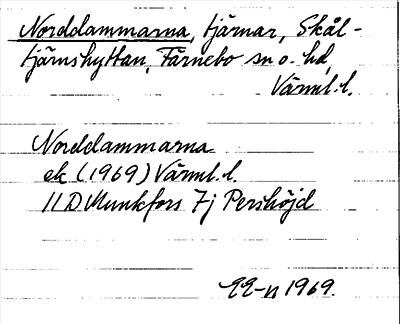 Norddammarna, tjärnar, Skål-
tjärnshyttan, Färnebo sn o. hd,
Värml. l.
Norddammarna
ek (1969) Värml. l.
11 D Munkfors 7j Pershöjd
1969.